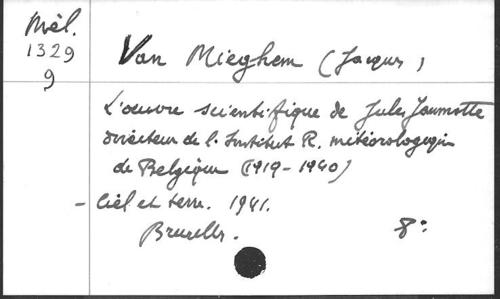 Mél.
1329
9
Van Mieghem (Jacques)
L'oeuvre scientifique de Jules Jaumotte
directeur de l'Institut R. météorologique
de Belgique (1919-1940)
- Ciel et terre. 1941.
Bruxelles. 8°